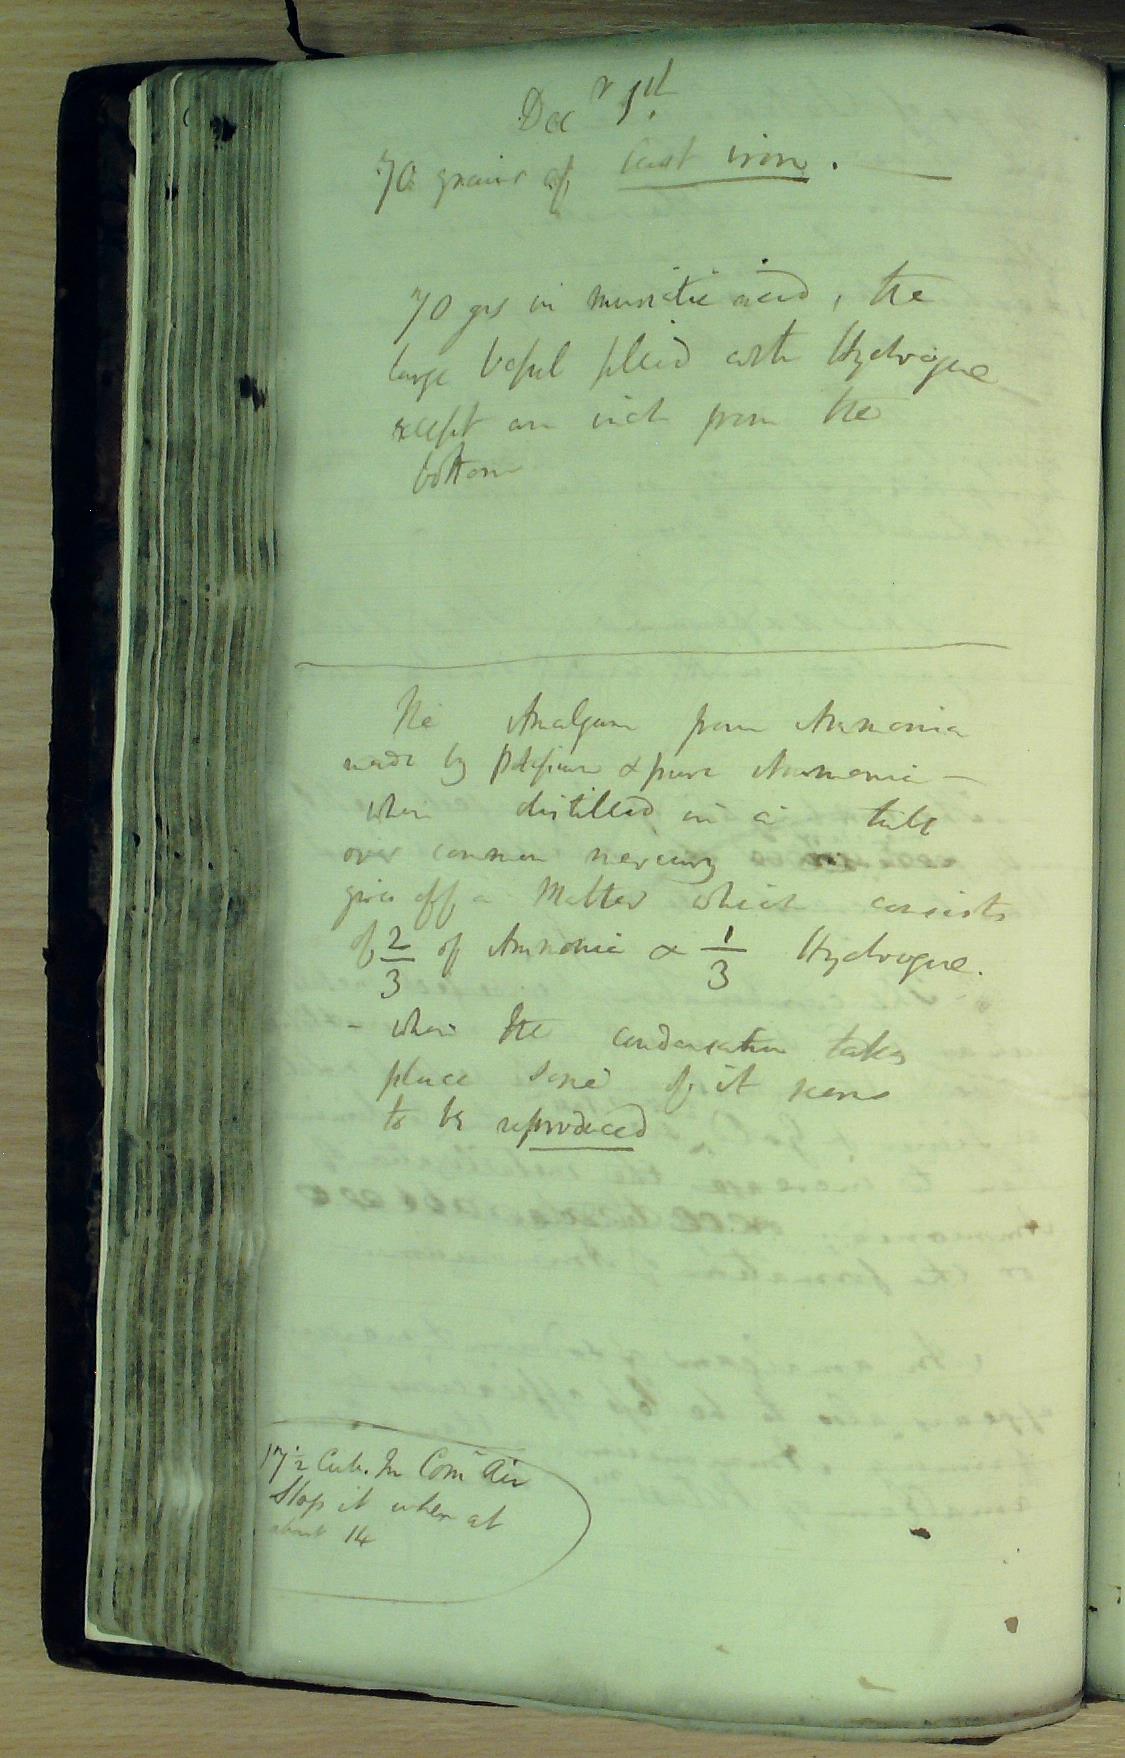 Decr 1st.
70 grains of cast iron.
70 grs in muriatic acid, the
large vessel filled with Hydrogene
except an inch from the
bottom
The Amalgam from Ammonia
made by Potassium & pure Ammonia -
when distilled in a tube
over common mercury
gives off a Matter which consists
of 2/3 of Ammonia & 1/3 Hydrogene.
- when the condensation takes
place some of it seems
to be reproduced
17½ Cub. In Comn Air
Stop it when at
about 14